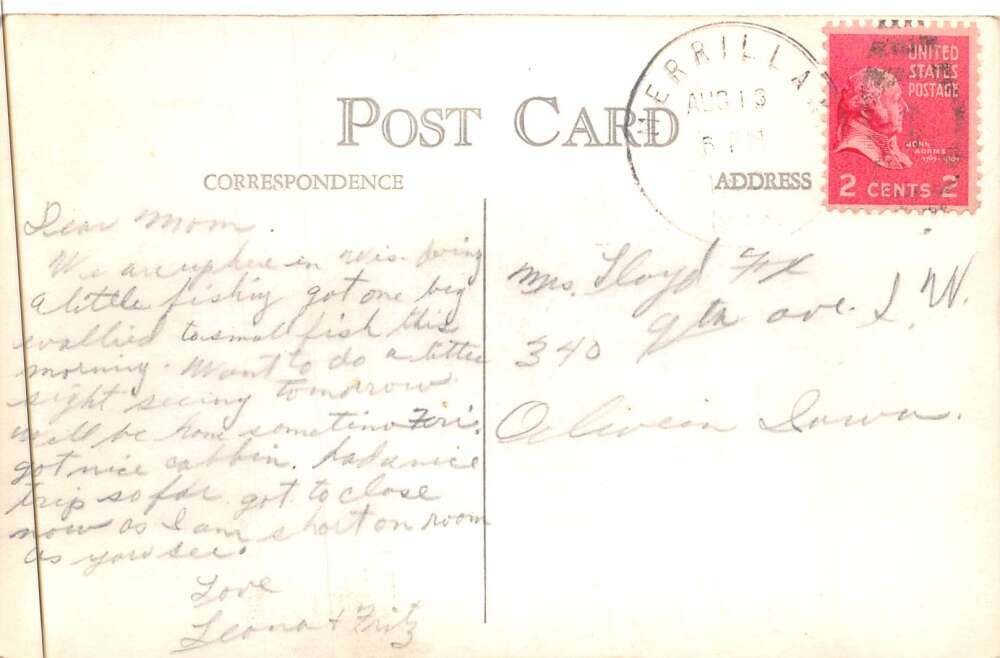 POST CARD
CORRESPONDENCE
ADDRESS
MERRILLAN
AUG 13
UNITED
STATES
POSTAGE
JOHN
ADAMS
2 CENTS 2
Dear Mom.
We are up here in Wis. doing
a little fishing got one big
wallied to small fish this
morning. Want to do a little
sight seeing tomorrow.
will be home sometime Fri.
got nice cabbin. had a nice
trip so far got to close
now as I am short on room
as you see.
Love
Leona + Fritz
Mrs. Floyd Fox
340 9th ave. S. W.
Oelwein Iowa.